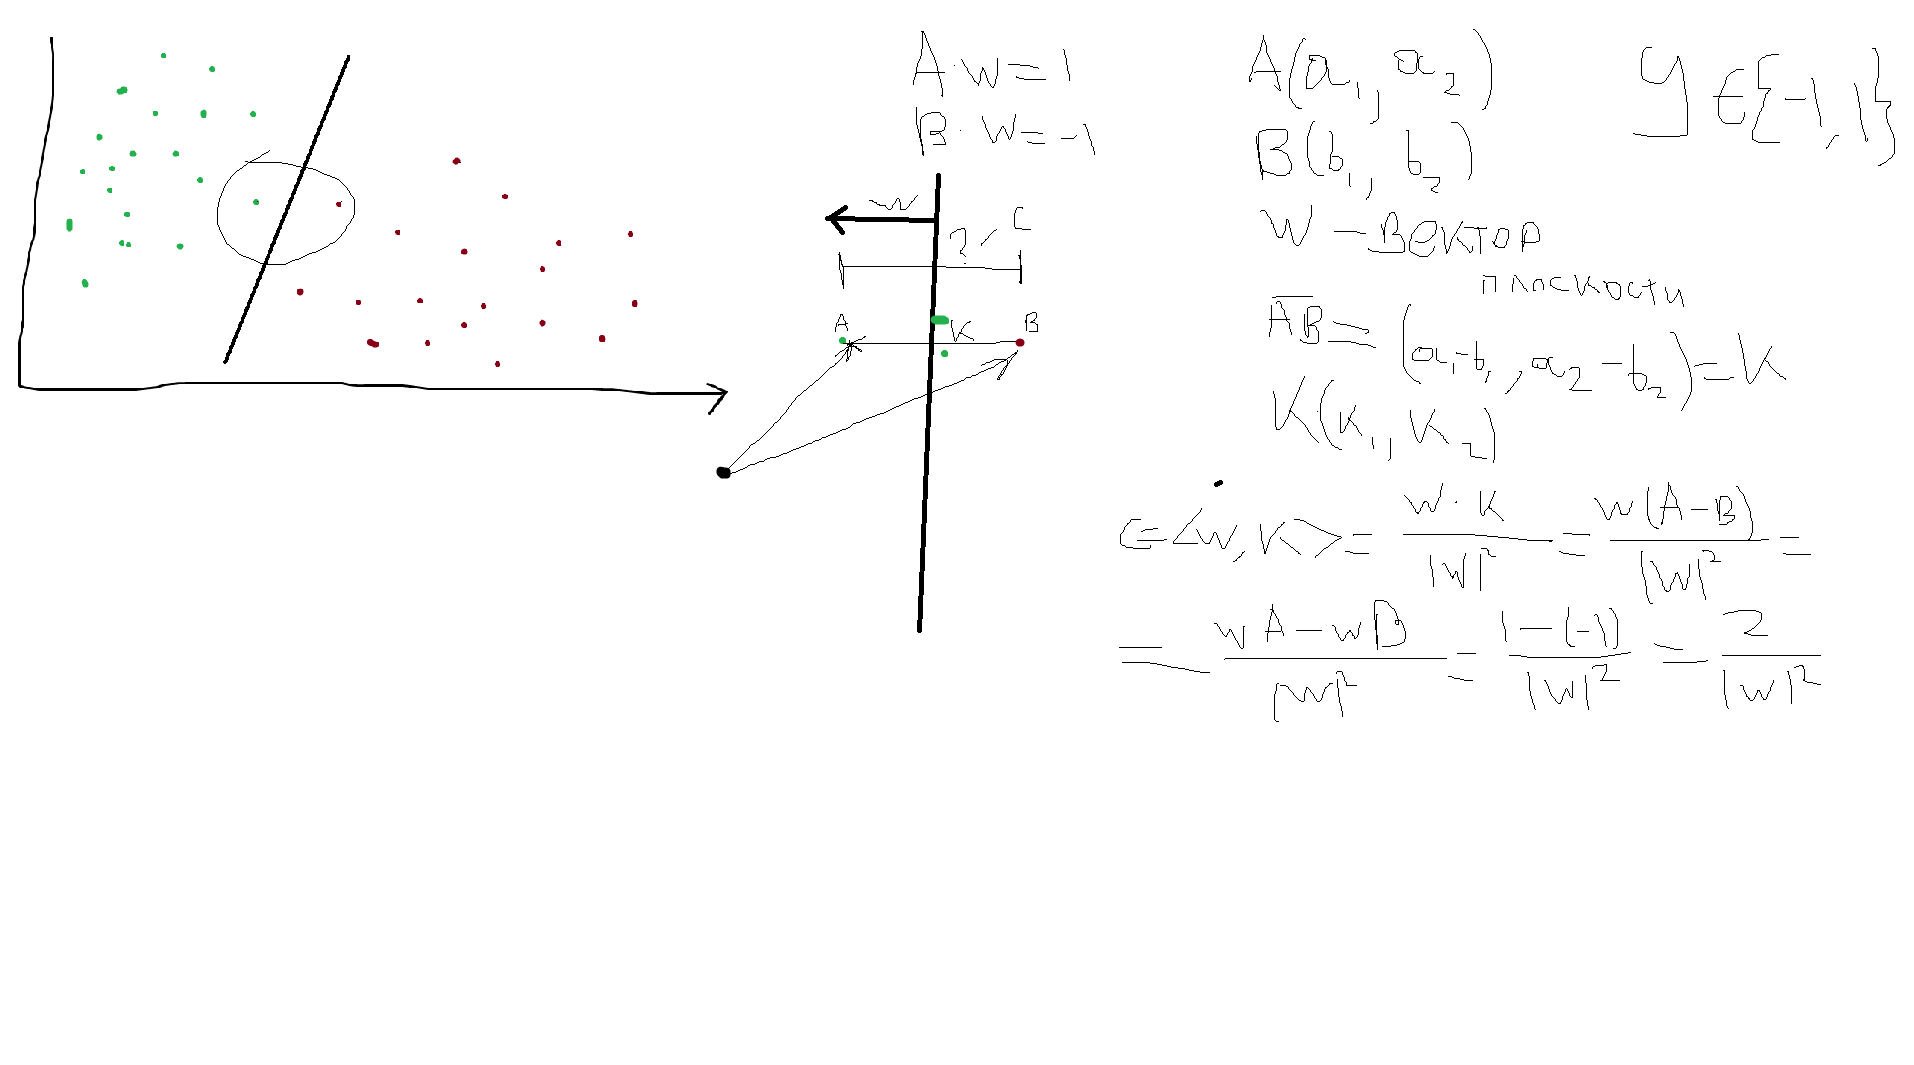 A · w = 1
B · w = -1
w
? / C
A
K
B
A(a₁, a₂)
B(b₁, b₂)
w - вектор
плоскости
AB = (a₁-b₁, a₂-b₂) = K
K(k₁, k₂)
y ∈ {-1, 1}
C = <w, K> = w · K / |w|² = w(A-B) / |w|² =
= wA - wB / |w|² = 1 - (-1) / |w|² = 2 / |w|²